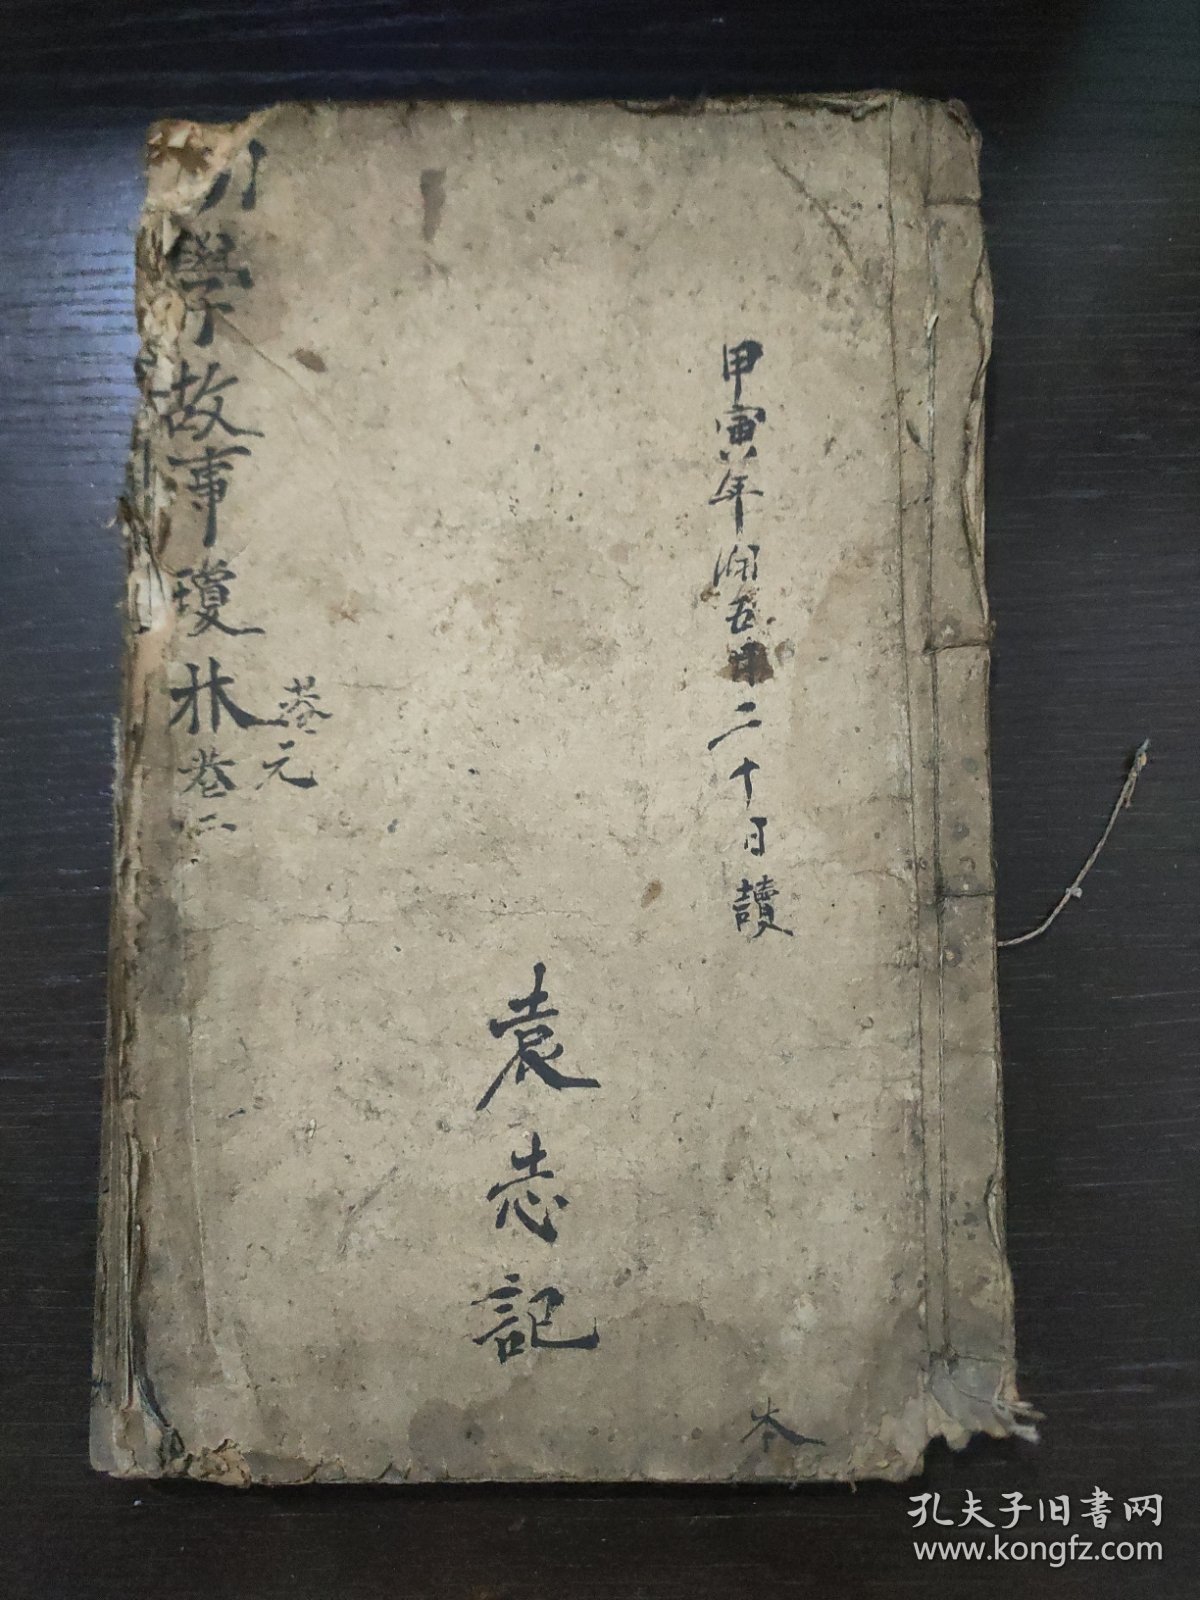 甲寅年闰五月二十日讀
袁志記
卷元
學故事瓊林卷二
本
孔夫子旧書网
www.kongfz.com